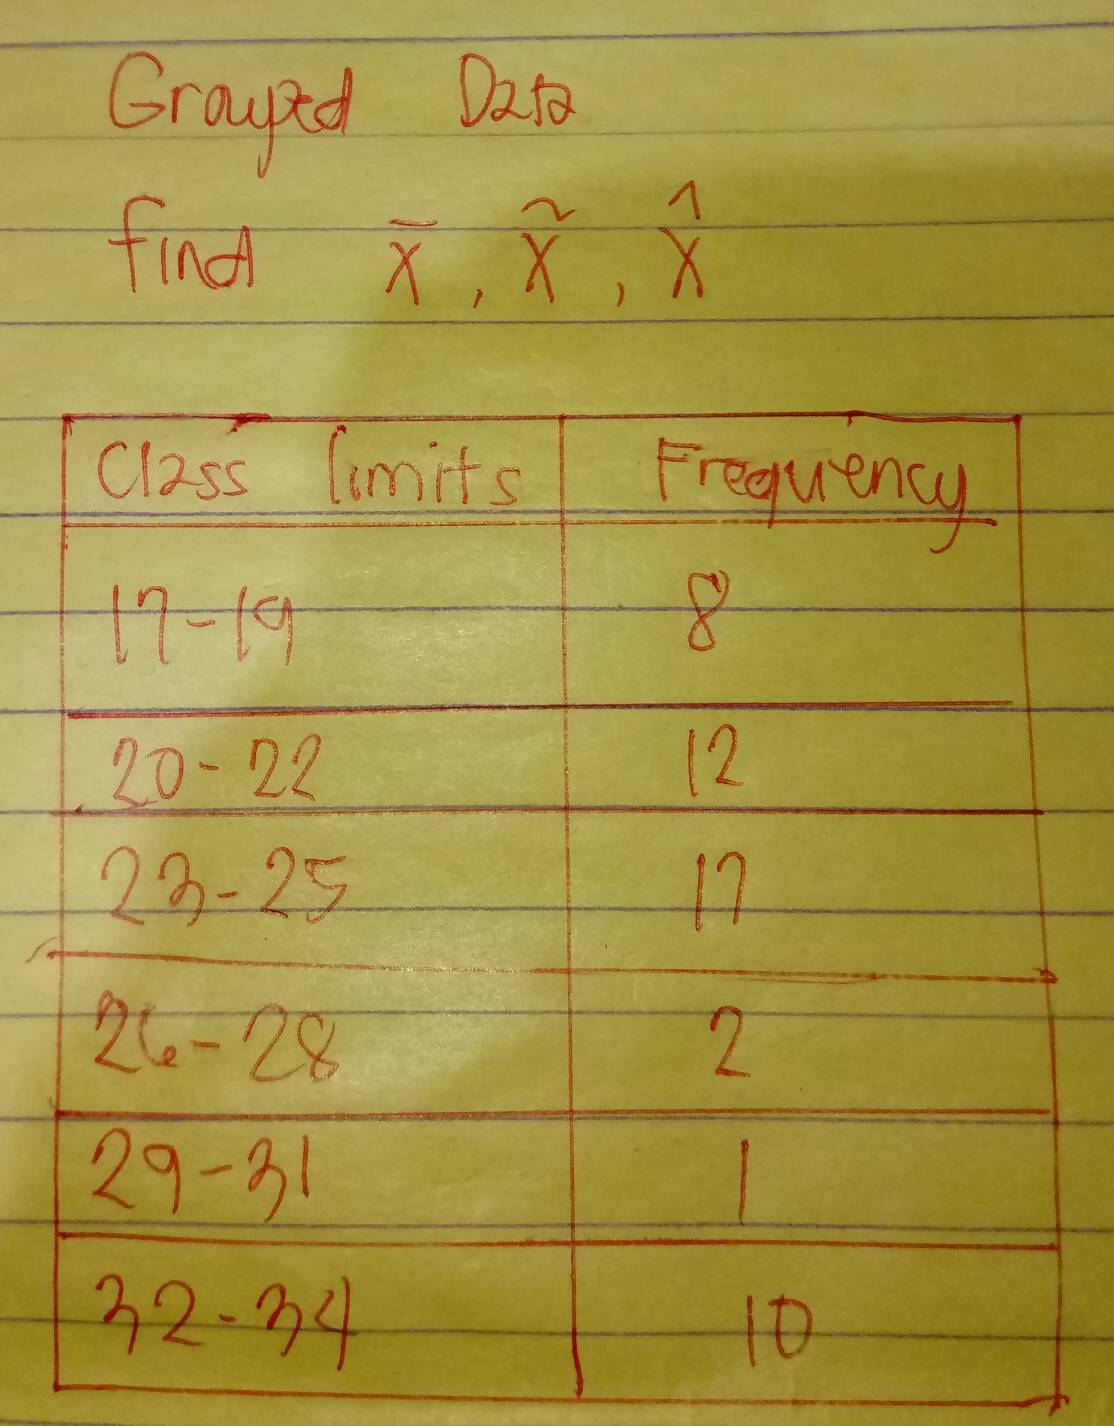 Grouped Data
find x̄ , x̃ , x̂
Class limits Frequency
17-19 8
20-22 12
23-25 17
26-28 2
29-31 1
32-34 10